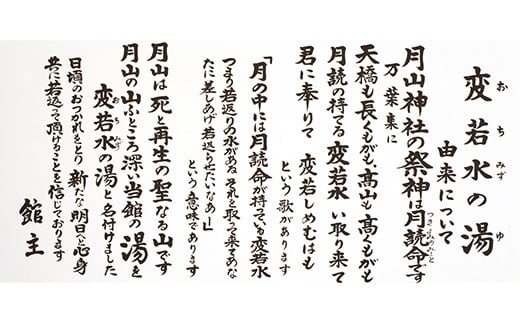 変若水の湯
おちみず ゆ
由来について
月山神社の祭神は月読命です
つきよみのみこと
万葉集に
天橋も長くもがも、高山も高くもがも
月読の持てる変若水 い取り来て
君に奉りて 変若しめむはも
という歌があります
「月の中には月読命が持っている変若水
つまり若返りの水があるなぁ それを取って来てあな
たに差しあげ若返らせたいなあ!」
という意味であります
月山は死と再生の聖なる山です
月山の山ふところ深い当館の湯を
変若水の湯と名付けました
おちみず
日頃のおつかれをとり 新たな明日へと心身
共に若返って頂けることを信じております
館主